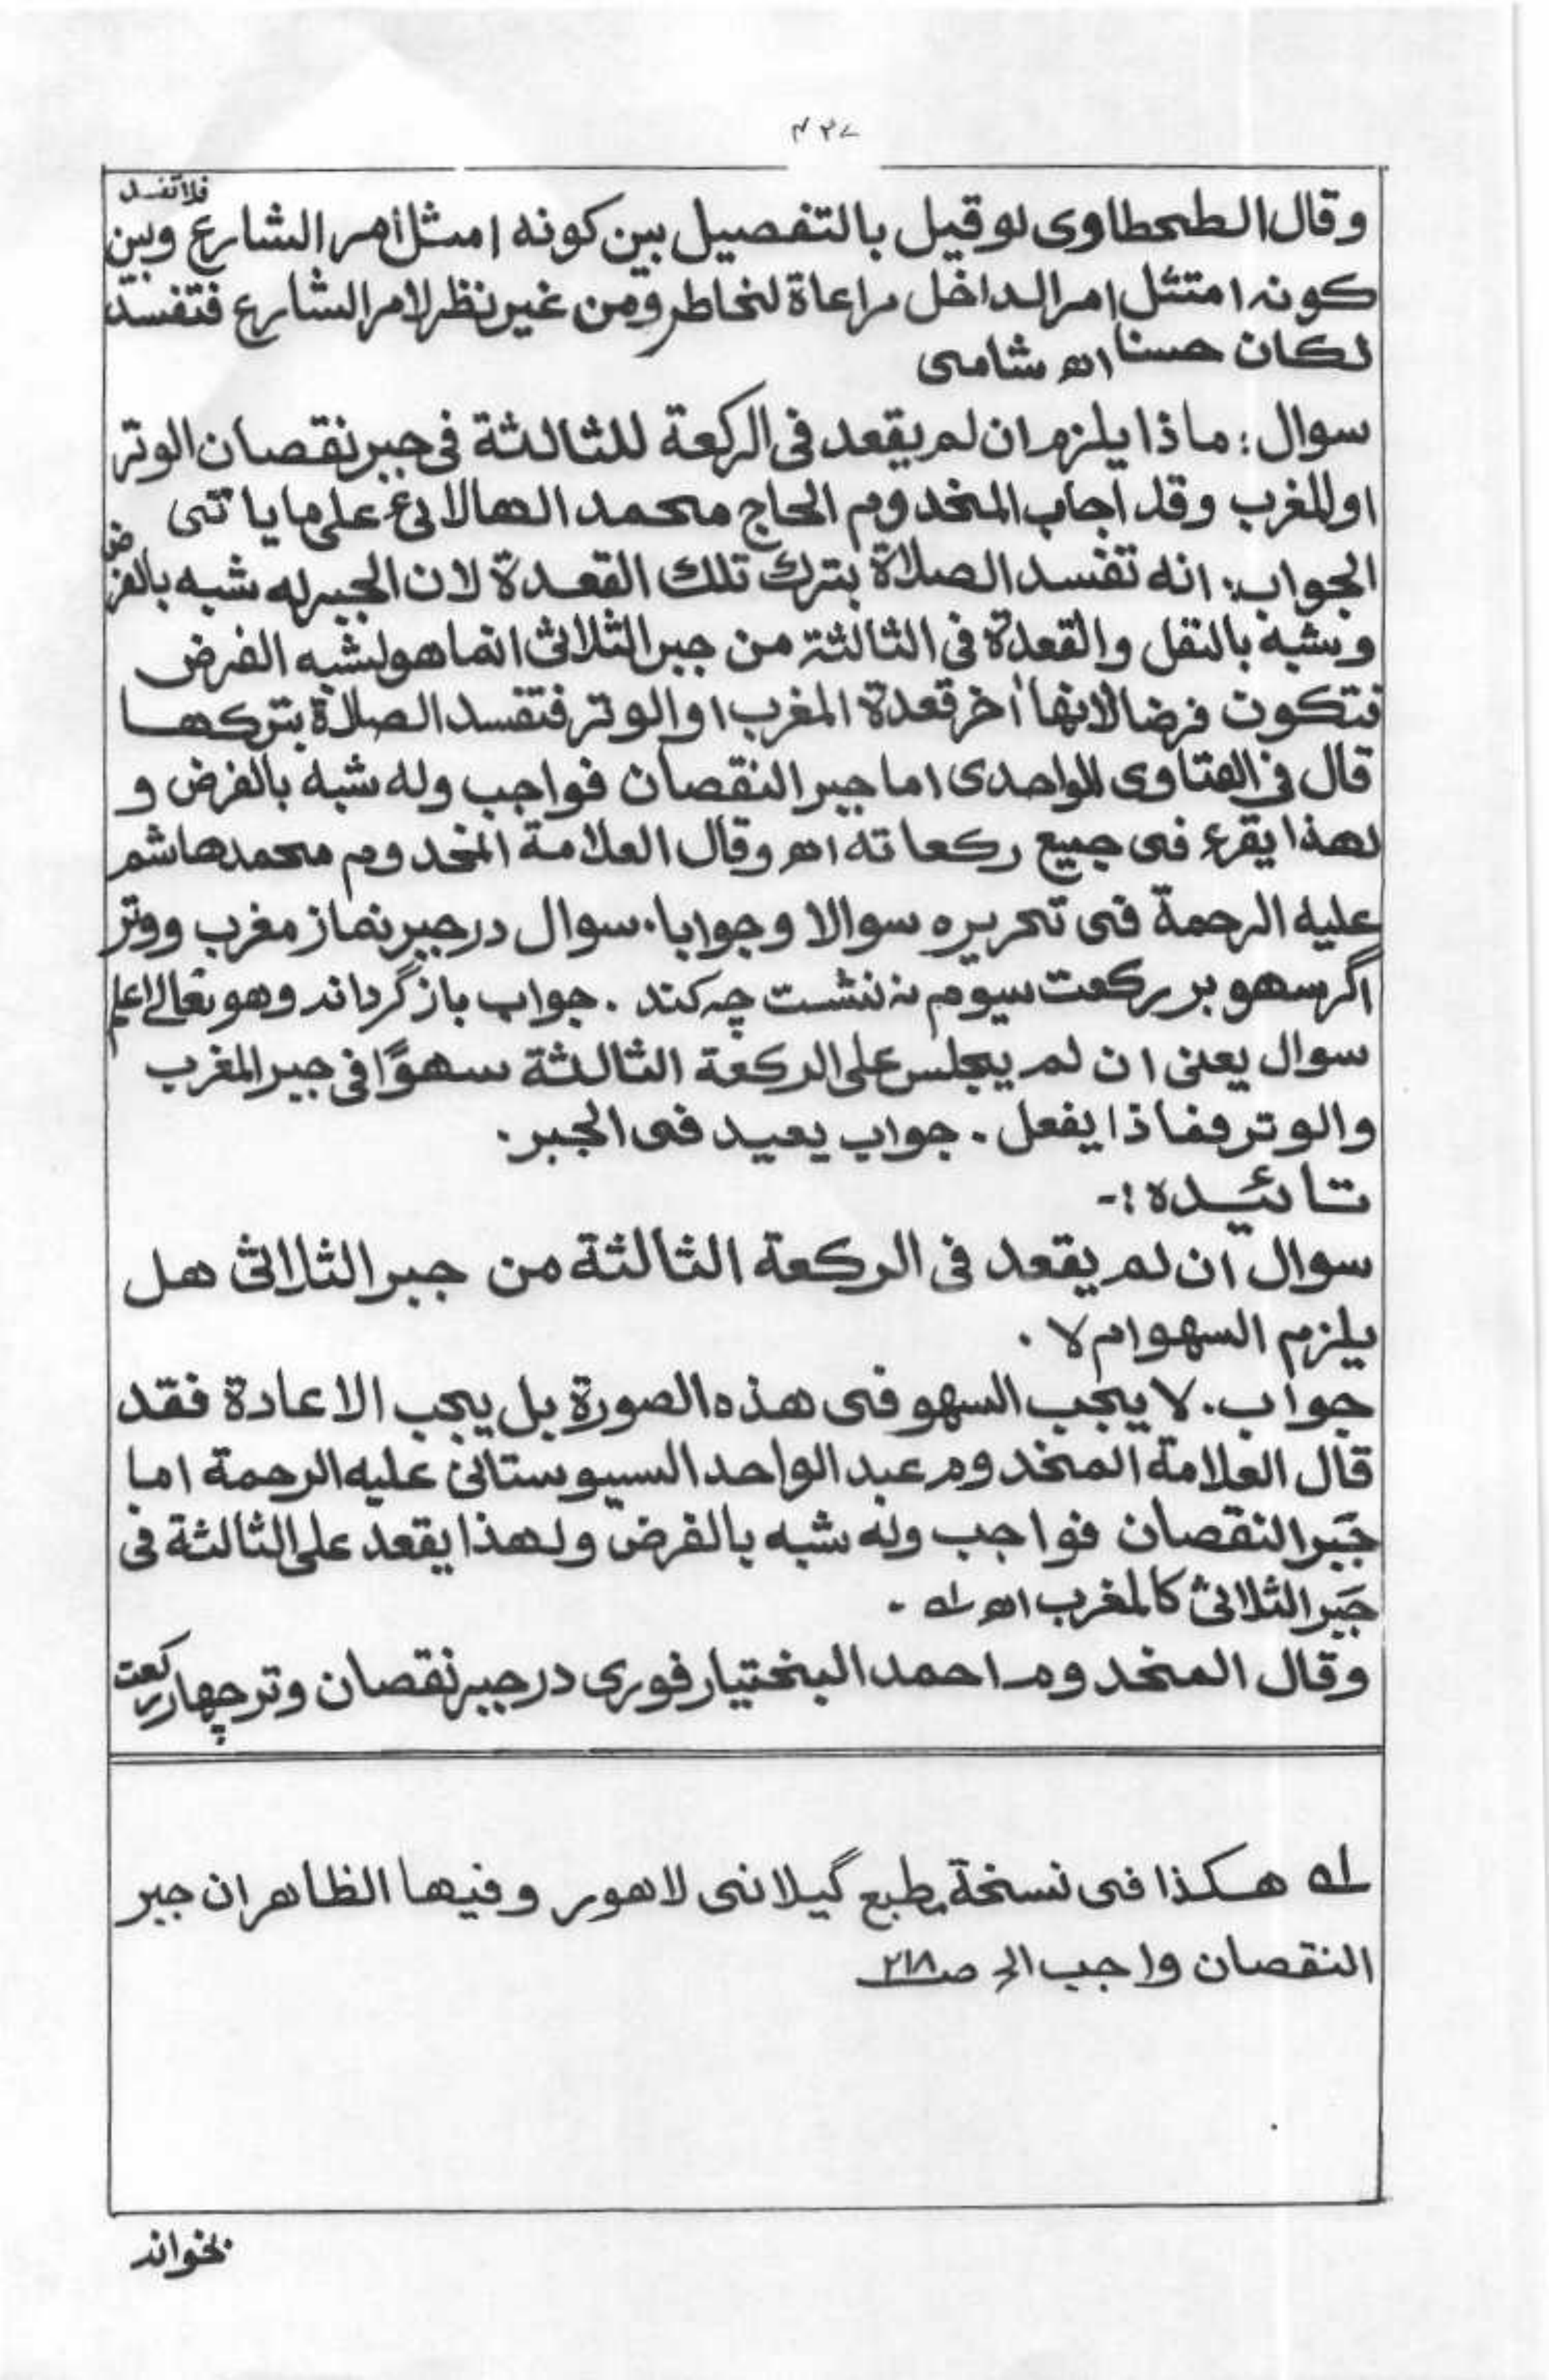 ۴۲۷
وقال الطحطاوى لو قيل بالتفصيل بين كونه امتثل امر الشارع فلا تفسد وبين
كونه امتثل امر الداخل مراعاة لخاطره ومن غير نظر لامر الشارع فتفسد
لكان حسنا اھ شامى
سوال: ماذا يلزم ان لم يقعد فى الركعة للثالثة فى جبر نقصان الوتر
او المغرب وقد اجاب المخدوم الحاج محمد الهالائى على ما ياتى
الجواب: انه تفسد الصلاة بترك تلك القعدة لان الجبر له شبه بالفرض
وشبه بالنفل والقعدة فى الثالثة من جبر الثلاثى انما هو لشبه الفرض
فتكون فرضا لانها أخر قعدة المغرب او الوتر فتفسد الصلاة بتركها
قال فى الفتاوى للواحدى اما جبر النقصان فواجب وله شبه بالفرض و
لهذا يقرء فى جميع ركعاته اھ وقال العلامة المخدوم محمد هاشم
عليه الرحمة فى تحريره سوالا وجوابا. سوال در جبر نماز مغرب ووتر
اگر سهو بر ركعت سيوم نه ننشست چه كند . جواب باز گرداند وهو تعالى اعلم
سوال يعنى ان لم يجلس على الركعة الثالثة سهوًا فى جبر المغرب
والوتر فماذا يفعل . جواب يعيد فى الجبر .
تائيده :-
سوال ان لم يقعد فى الركعة الثالثة من جبر الثلاثى هل
يلزم السهو ام لا .
جواب . لا يجب السهو فى هذه الصورة بل يجب الاعادة فقد
قال العلامة المخدوم عبد الواحد السيوستانى عليه الرحمة اما
جَبر النقصان فواجب وله شبه بالفرض ولهذا يقعد على الثالثة فى
جَبر الثلاثى كالمغرب اھ لـه .
وقال المخدوم احمد البختيارفورى در جبر نقصان وتر چهار ركعت
لـه هكذا فى نسخة طبع گيلانى لاهور وفيها الظاهر ان جبر
النقصان واجب الخ صـ۲۱۸
بخواند